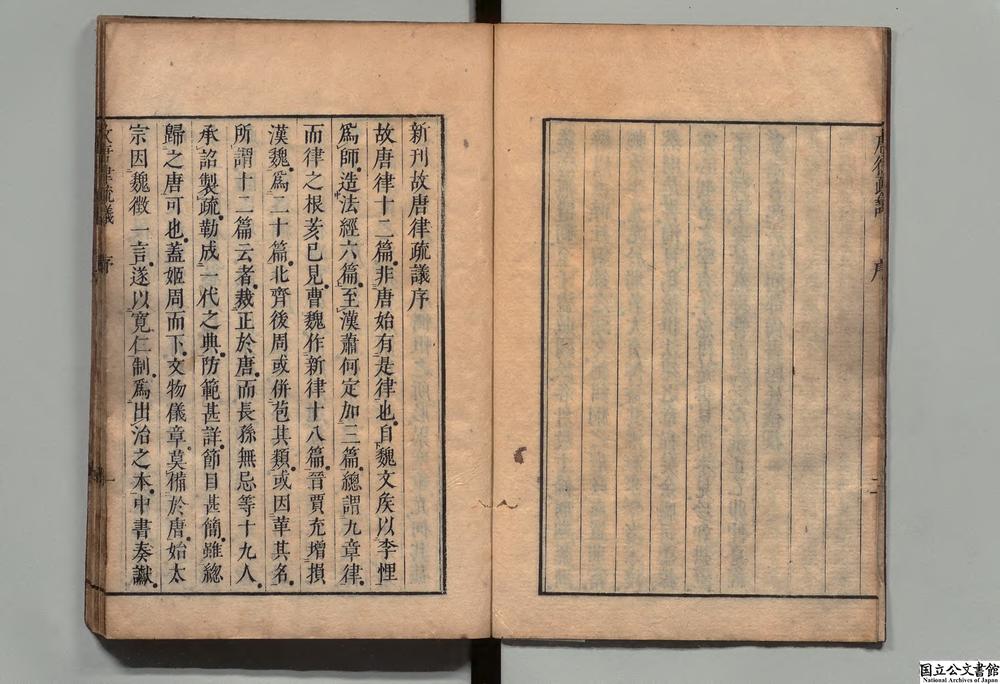 唐律疏議 序 二
新刊故唐律疏議序
故唐律十二篇非唐始有是律也自魏文矦以李悝
爲師造法經六篇至漢蕭何定加三篇總謂九章律
而律之根荄已見曹魏作新律十八篇晉賈充增損
漢魏爲二十篇北齊後周或併苞其類或因革其名
所謂十二篇云者裁正於唐而長孫無忌等十九人
承詔製疏勒成一代之典防範甚詳節目甚簡雖緫
歸之唐可也蓋姬周而下文物儀章莫備於唐始太
宗因魏徵一言遂以寛仁制爲出治之本中書奏讞
故唐律疏議 序 一
国立公文書館
National Archives of Japan